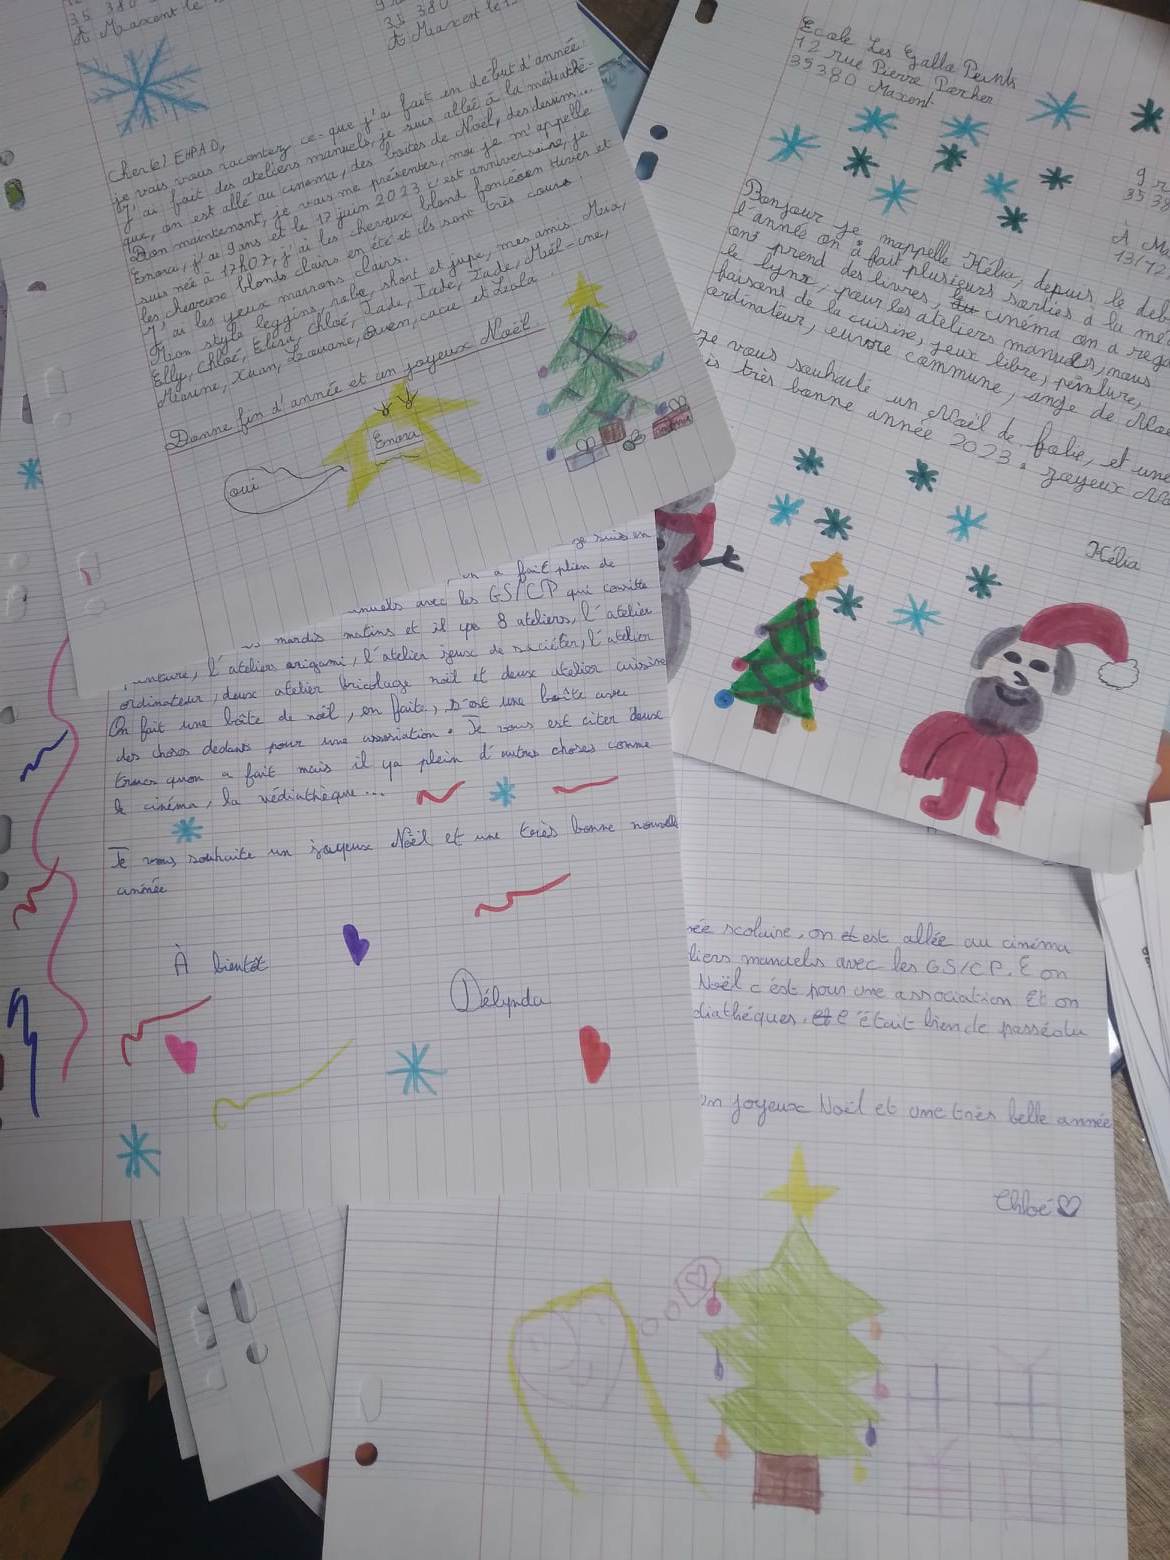 35 380
À Maxent le
35 380
À Maxent le 1
Cher(e) EHPAD,
Je vais vous raconter ce que j'ai fait en début d'année
J'ai fait des ateliers manuels, je suis allée à la médiathè-
que, on est allé au cinéma, des boîtes de Noël, des dessins...
Bon maintenant, je vais me présenter, moi je m'appelle
Enora, j'ai 9 ans et le 17 juin 2023 c'est anniversaire, je
suis née à 17h07, j'ai les cheveux blond foncé en hiver et
les cheveux blonds clairs en été et ils sont très cours.
J'ai les yeux marrons clairs.
Mon style leggins, robe, short et jupe, mes amis
Elly, Chloé, Chloé, Jade, Jade, Jade,
Bonne fin d'année et un joyeux Noël
Enora
oui
Ecole Les Galla Peints
12 rue Pierre Porcher
35380 Maxent
9 r
35 38
À Ma
13/12
Bonjour je mappelle Hélia, depuis le déb
l'année on a fait plusieurs sorties à la mé
ont prend des livres, cinéma on a rega
le lynx, pour les ateliers manuels, nous
faisons de la cuisine, jeux libre, peinture,
ordinateur, œuvre commune, ange de
je vous souhaite un Noël de folie, et une
is très bonne année 2023. joyeux
Hélia
je suis en
on a fait plein de
nuels avec les GS/CP qui consitte
mardis matins et il ya 8 ateliers, l'atelier
inture, l'atelier origami, l'atelier jeux de sociéter, l'atelier
ordinateur, deux atelier bricolage noël et deux atelier cuisine
On fait une boîte de noël, en faite, s'est une boîte avec
des choses dedans pour une association. Je vous est citer deux
trucs quon a fait mais il ya plein d'autres choses comme
le cinéma, la médiathèque...
Je vous souhaite un joyeux Noël et une très bonne nouvelle
année
À bientôt
Délynda
née scolaire, on est allée au cinéma
liers manuels avec les GS/CP. E on
Noël c'est pour une association Et on
diathéques. c'était bien de passéolu
un joyeux Noël et une très belle année
Chloé